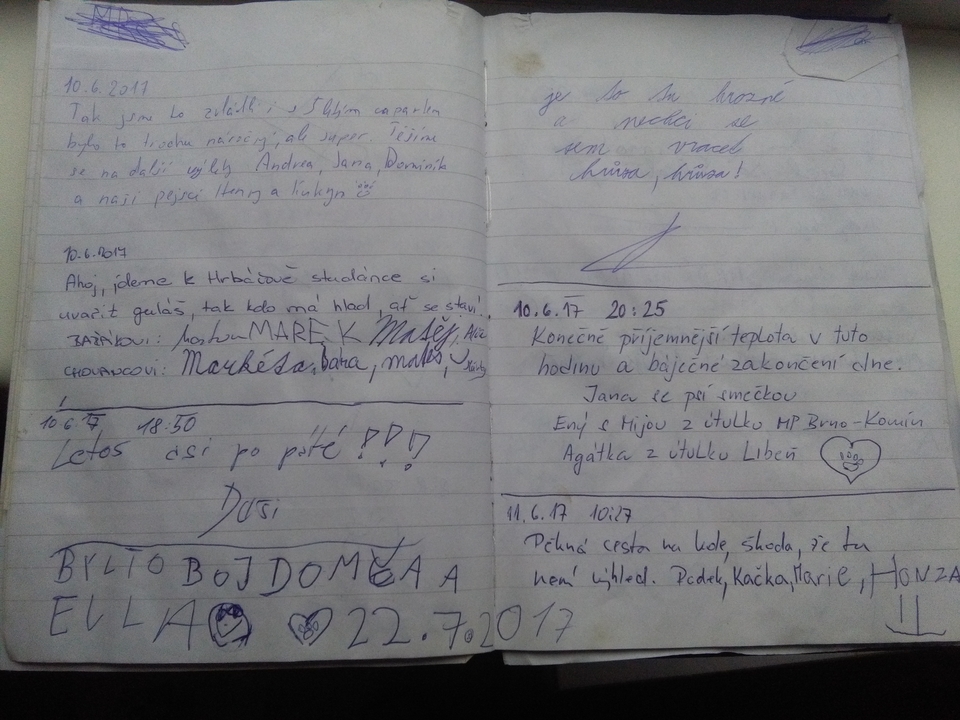 10.6.2017
Tak jsme to zvládli i s 5 letým caparten
bylo to trochu náročný, ale super. Těšíme
se na další výlety Andrea, Jana, Dominik
a naši pejsci Henry a
10.6.2017
Ahoj, jdeme k Hrbáčově studánce si
uvařit guláš, tak kdo má hlad, ať se staví!
BAŽÁKOVI: MAREK Matěj,
CHOVANCOVI: Markéta, Bára,
10.6.17 18:50
Letos asi po páté!!!
Daši
BYLTO BOJ DOMČA A
ELLA 22.7.2017
je to tu hrozné
a nechci se
sem vracet
hrůza, hrůza!
10.6.17 20:25
Konečně příjemnější teplota v tuto
hodinu a báječné zakončení dne.
Jana se psí smečkou
Eny s Mijou z útulku MP Brno-Komín
Agátka z útulku Libeň
11.6.17 10:27
Pěkná cesta na kole, škoda, že tu
není výhled. Radek, Kačka, Marie, HONZA